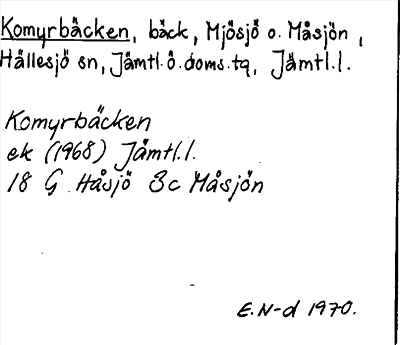 Komyrbäcken, bäck, Mjösjö o. Måsjön,
Hällesjö sn, Jämtl. ö. doms. tg, Jämtl. l.
Komyrbäcken
ek (1968) Jämtl. l.
18 G Håsjö 3c Måsjön
E. N-d 1970.